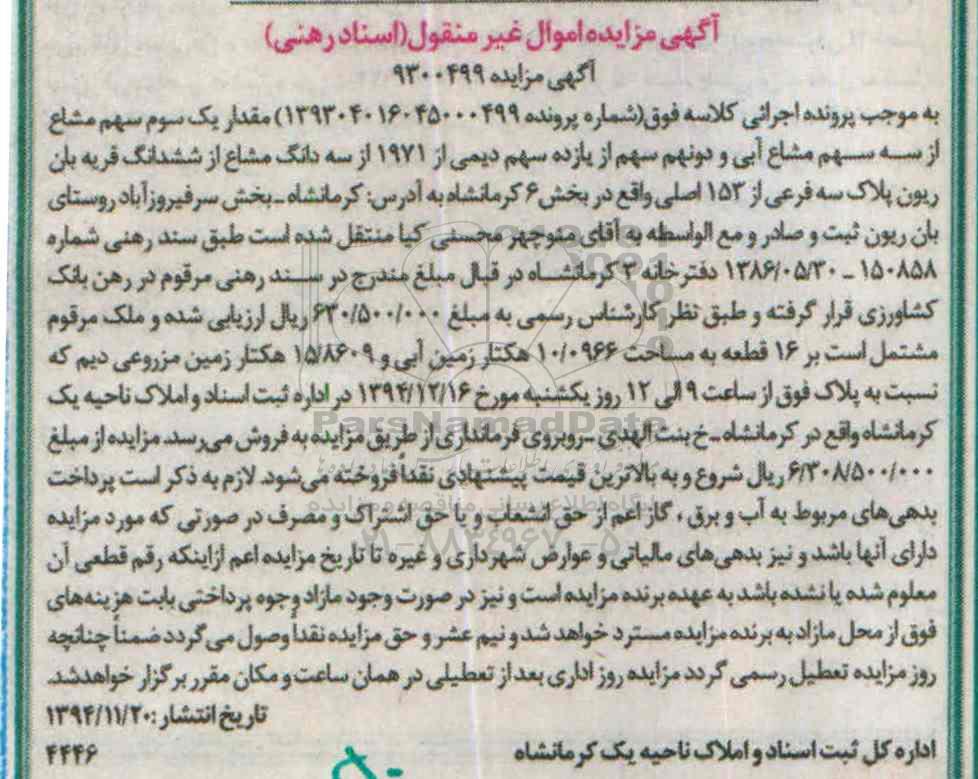 آگهی مزایده اموال غیر منقول(اسناد رهنی)
آگهی مزایده ۹۳۰۰۴۹۹
به موجب پرونده اجرائی کلاسه فوق(شماره پرونده ۱۳۹۳۰۴۰۱۶۰۴۵۰۰۰۴۹۹) مقدار یک سوم سهم مشاع
از ســه ســهم مشاع آبی و دونهم سهم از یازده سهم دیمی از ۱۹۷۱ از سه دانگ مشاع از ششدانگ قریه بان
ریون پلاک سه فرعی از ۱۵۳ اصلی واقع در بخش ۶ کرمانشاه به آدرس: کرمانشاه ـ بخش سرفیروزآباد روستای
بان ریون ثبت و صادر و مع الواسطه به آقای منوچهر محسنی کیا منتقل شده است طبق سند رهنی شماره
۱۵۰۸۵۸ ـ ۱۳۸۶/۰۵/۳۰ دفترخانه ۳ کرمانشــاه در قبال مبلغ مندرج در ســند رهنی مرقوم در رهن بانک
کشاورزی قرار گرفته و طبق نظر کارشناس رسمی به مبلغ ۶۳۰/۵۰۰/۰۰۰ ریال ارزیابی شده و ملک مرقوم
مشتمل است بر ۱۶ قطعه به مساحت ۱۰/۰۹۶۶ هکتار زمین آبی و ۱۵/۸۶۰۹ هکتار زمین مزروعی دیم که
نسبت به پلاک فوق از ساعت ۹ الی ۱۲ روز یکشنبه مورخ ۱۳۹۴/۱۲/۱۶ در اداره ثبت اسناد و املاک ناحیه یک
کرمانشاه واقع در کرمانشاه ـ خ بنت الهدی ـ روبروی فرمانداری از طریق مزایده به فروش می‌رسد. مزایده از مبلغ
۶/۳۰۸/۵۰۰/۰۰۰ ریال شروع و به بالاترین قیمت پیشنهادی نقداً فروخته می‌شود. لازم به ذکر است پرداخت
بدهی‌های مربوط به آب و برق ، گاز اعم از حق انشعاب و یا حق اشتراک و مصرف در صورتی که مورد مزایده
دارای آنها باشد و نیز بدهی‌های مالیاتی و عوارض شهرداری و غیره تا تاریخ مزایده اعم ازاینکه رقم قطعی آن
معلوم شده یا نشده باشد به عهده برنده مزایده است و نیز در صورت وجود مازاد وجوه پرداختی بابت هزینه‌های
فوق از محل مازاد به برنده مزایده مسترد خواهد شد و نیم عشر و حق مزایده نقداً وصول می گردد ضمناً چنانچه
روز مزایده تعطیل رسمی گردد مزایده روز اداری بعد از تعطیلی در همان ساعت و مکان مقرر برگزار خواهدشد.
تاریخ انتشار :۱۳۹۴/۱۱/۲۰
اداره کل ثبت اسناد و املاک ناحیه یک کرمانشاه ۴۴۴۶
ParsNamadData
پایگاه اطلاع رسانی مناقصه و مزایده
۰۲۱-۸۸۳۴۹۶۷۰-۵